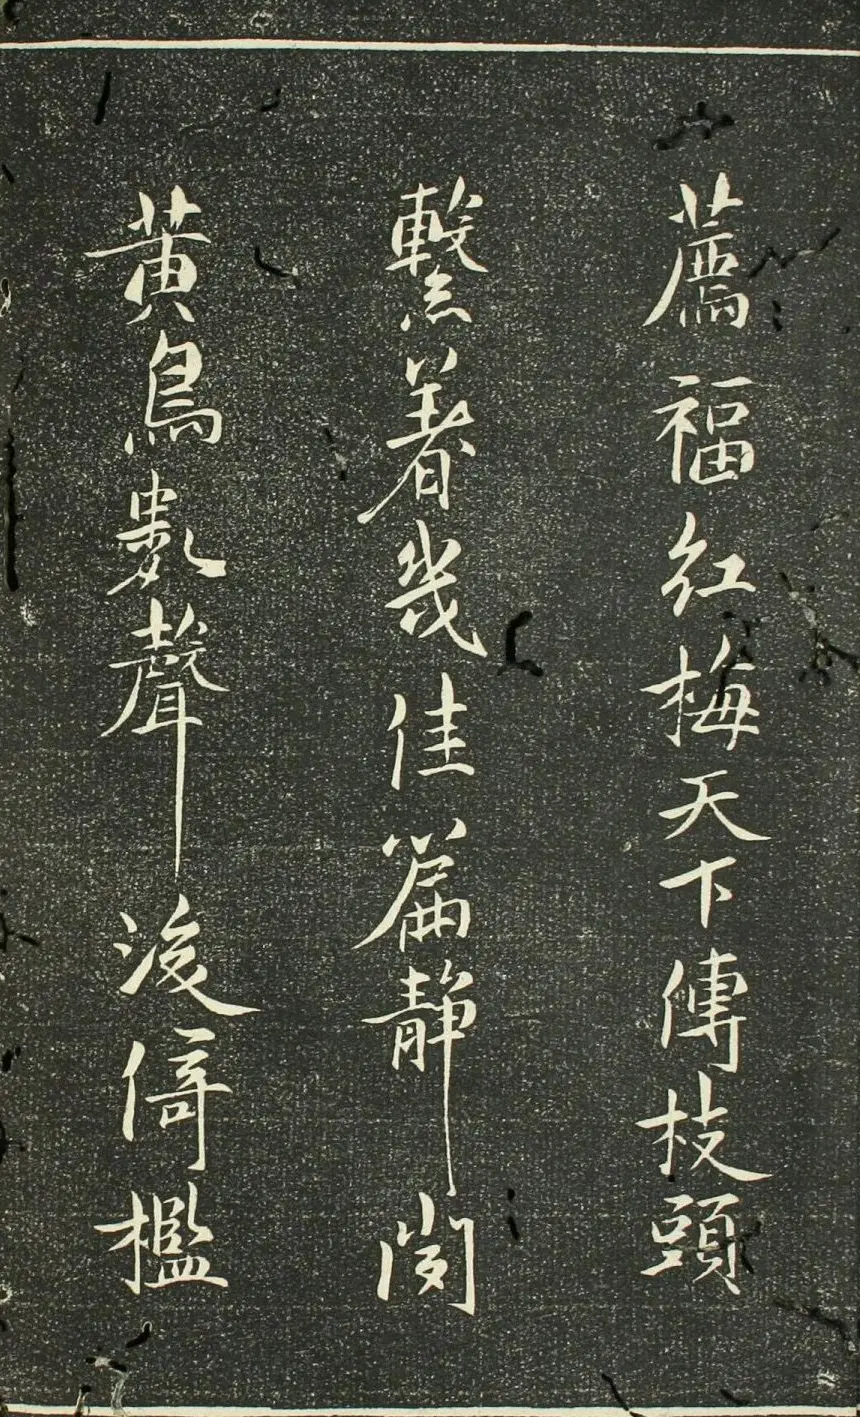 薦福紅梅天下傳枝頭
繫著幾佳篇靜閱
黃鳥數聲後倚檻